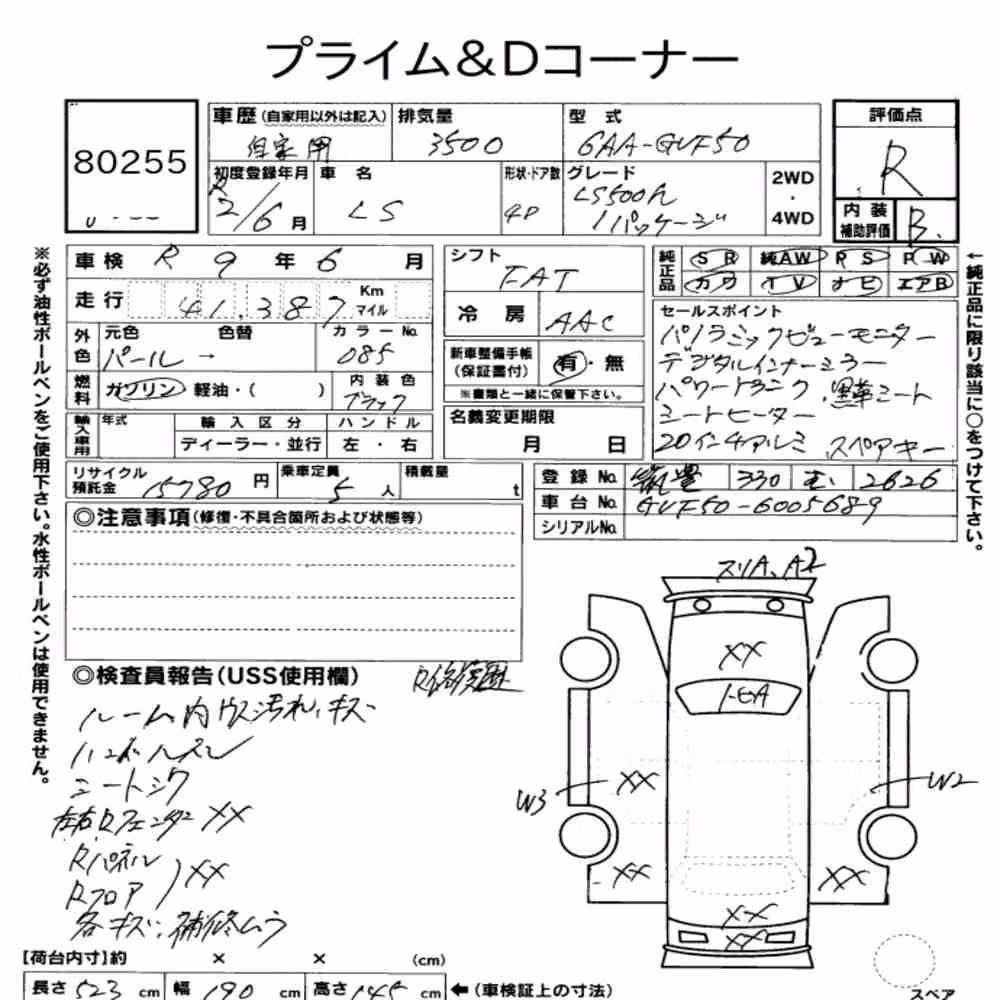 プライム&Dコーナー
80255
車歴(自家用以外は記入)
自家用
排気量
3500
型式
6AA-GVF50
評価点
R
初度登録年月
R2/6月
車名
LS
形状・ドア数
4D
グレード
LS500h
Iパッケージ
2WD
・
4WD
内装
補助評価
B
車検 R 9 年 6 月
シフト
FAT
純正品
SR 純AW PS PW
カワ TV ナビ エアB
走行 41,387 Km マイル
冷房 AAC
セールスポイント
パノラミックビューモニター
デジタルインナーミラー
パワートランク、黒革シート
シートヒーター
20インチアルミ スペアキー
外色 元色 色替 カラーNo.
パール → 085
新車整備手帳
(保証書付)
有・無
※書類と一緒に保管下さい。
燃料 ガソリン 軽油・( ) 内装色
ブラック
名義変更期限
月 日
輸入車用 年式 輸入区分 ハンドル
ディーラー・並行 左・右
リサイクル
預託金 15780 円
乗車定員 5 人
積載量 t
登録No. 筑豊 330 む 2626
車台No. GVF50-6005689
シリアルNo.
◎注意事項(修復・不具合箇所および状態等)
※必ず油性ボールペンをご使用下さい。水性ボールペンは使用できません。
←純正品に限り該当に○をつけて下さい。
スリA、A2
XX
XX
W3
W2
XX
XX
XX
XX
◎検査員報告(USS使用欄)
ルーム内ウス汚れ、キズ
ハンドルスレ
シートシワ
左右Rフェンダー XX
Rパネル
Rフロア
XX
各キズ、補修ムラ
【荷台内寸】約 × × (cm)
長さ 523 cm 幅 190 cm 高さ 145 cm ←(車検証上の寸法)
スペア